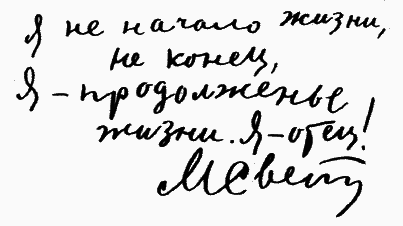 Я не начало жизни,
не конец,
Я – продолженье
жизни. Я – отец!
МСвет